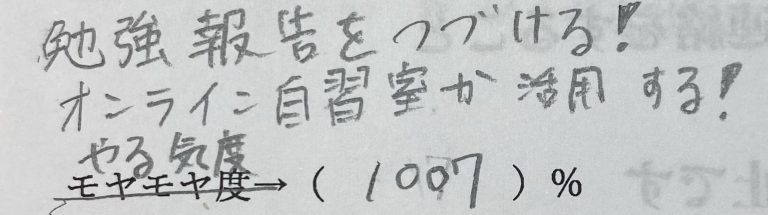 勉強報告をつづける!
オンライン自習室か活用する!
やる気度
モヤモヤ度→(1007)%